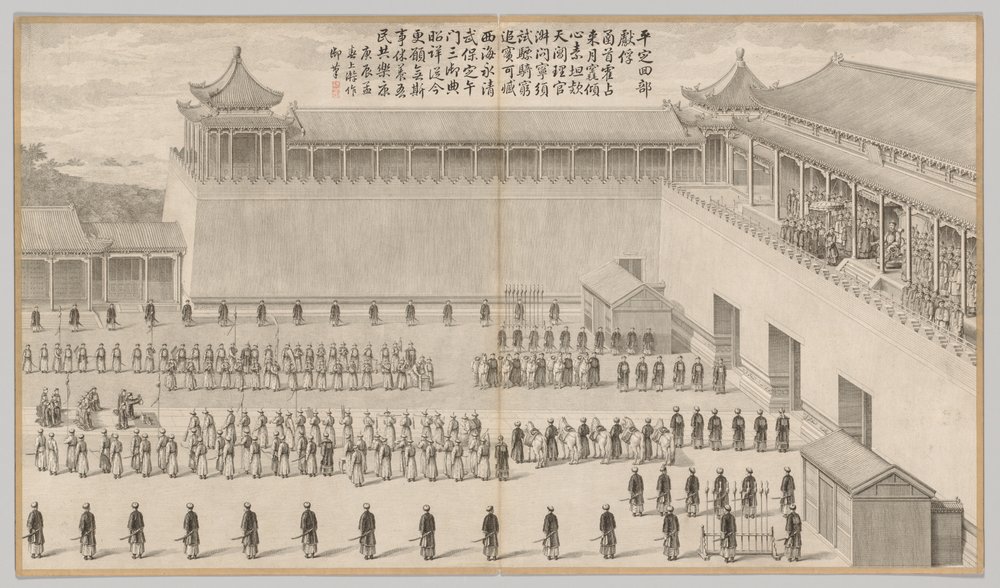 平定回部
獻俘
函首霍占
來月竁傾
心素坦款
天閶理官
淑問寧須
試驃騎窮
追實可臧
西海永清
武保定午
門三御典
昭詳從今
更願無斯
事休養吾
民共樂康
庚辰孟
春上澣作
御筆